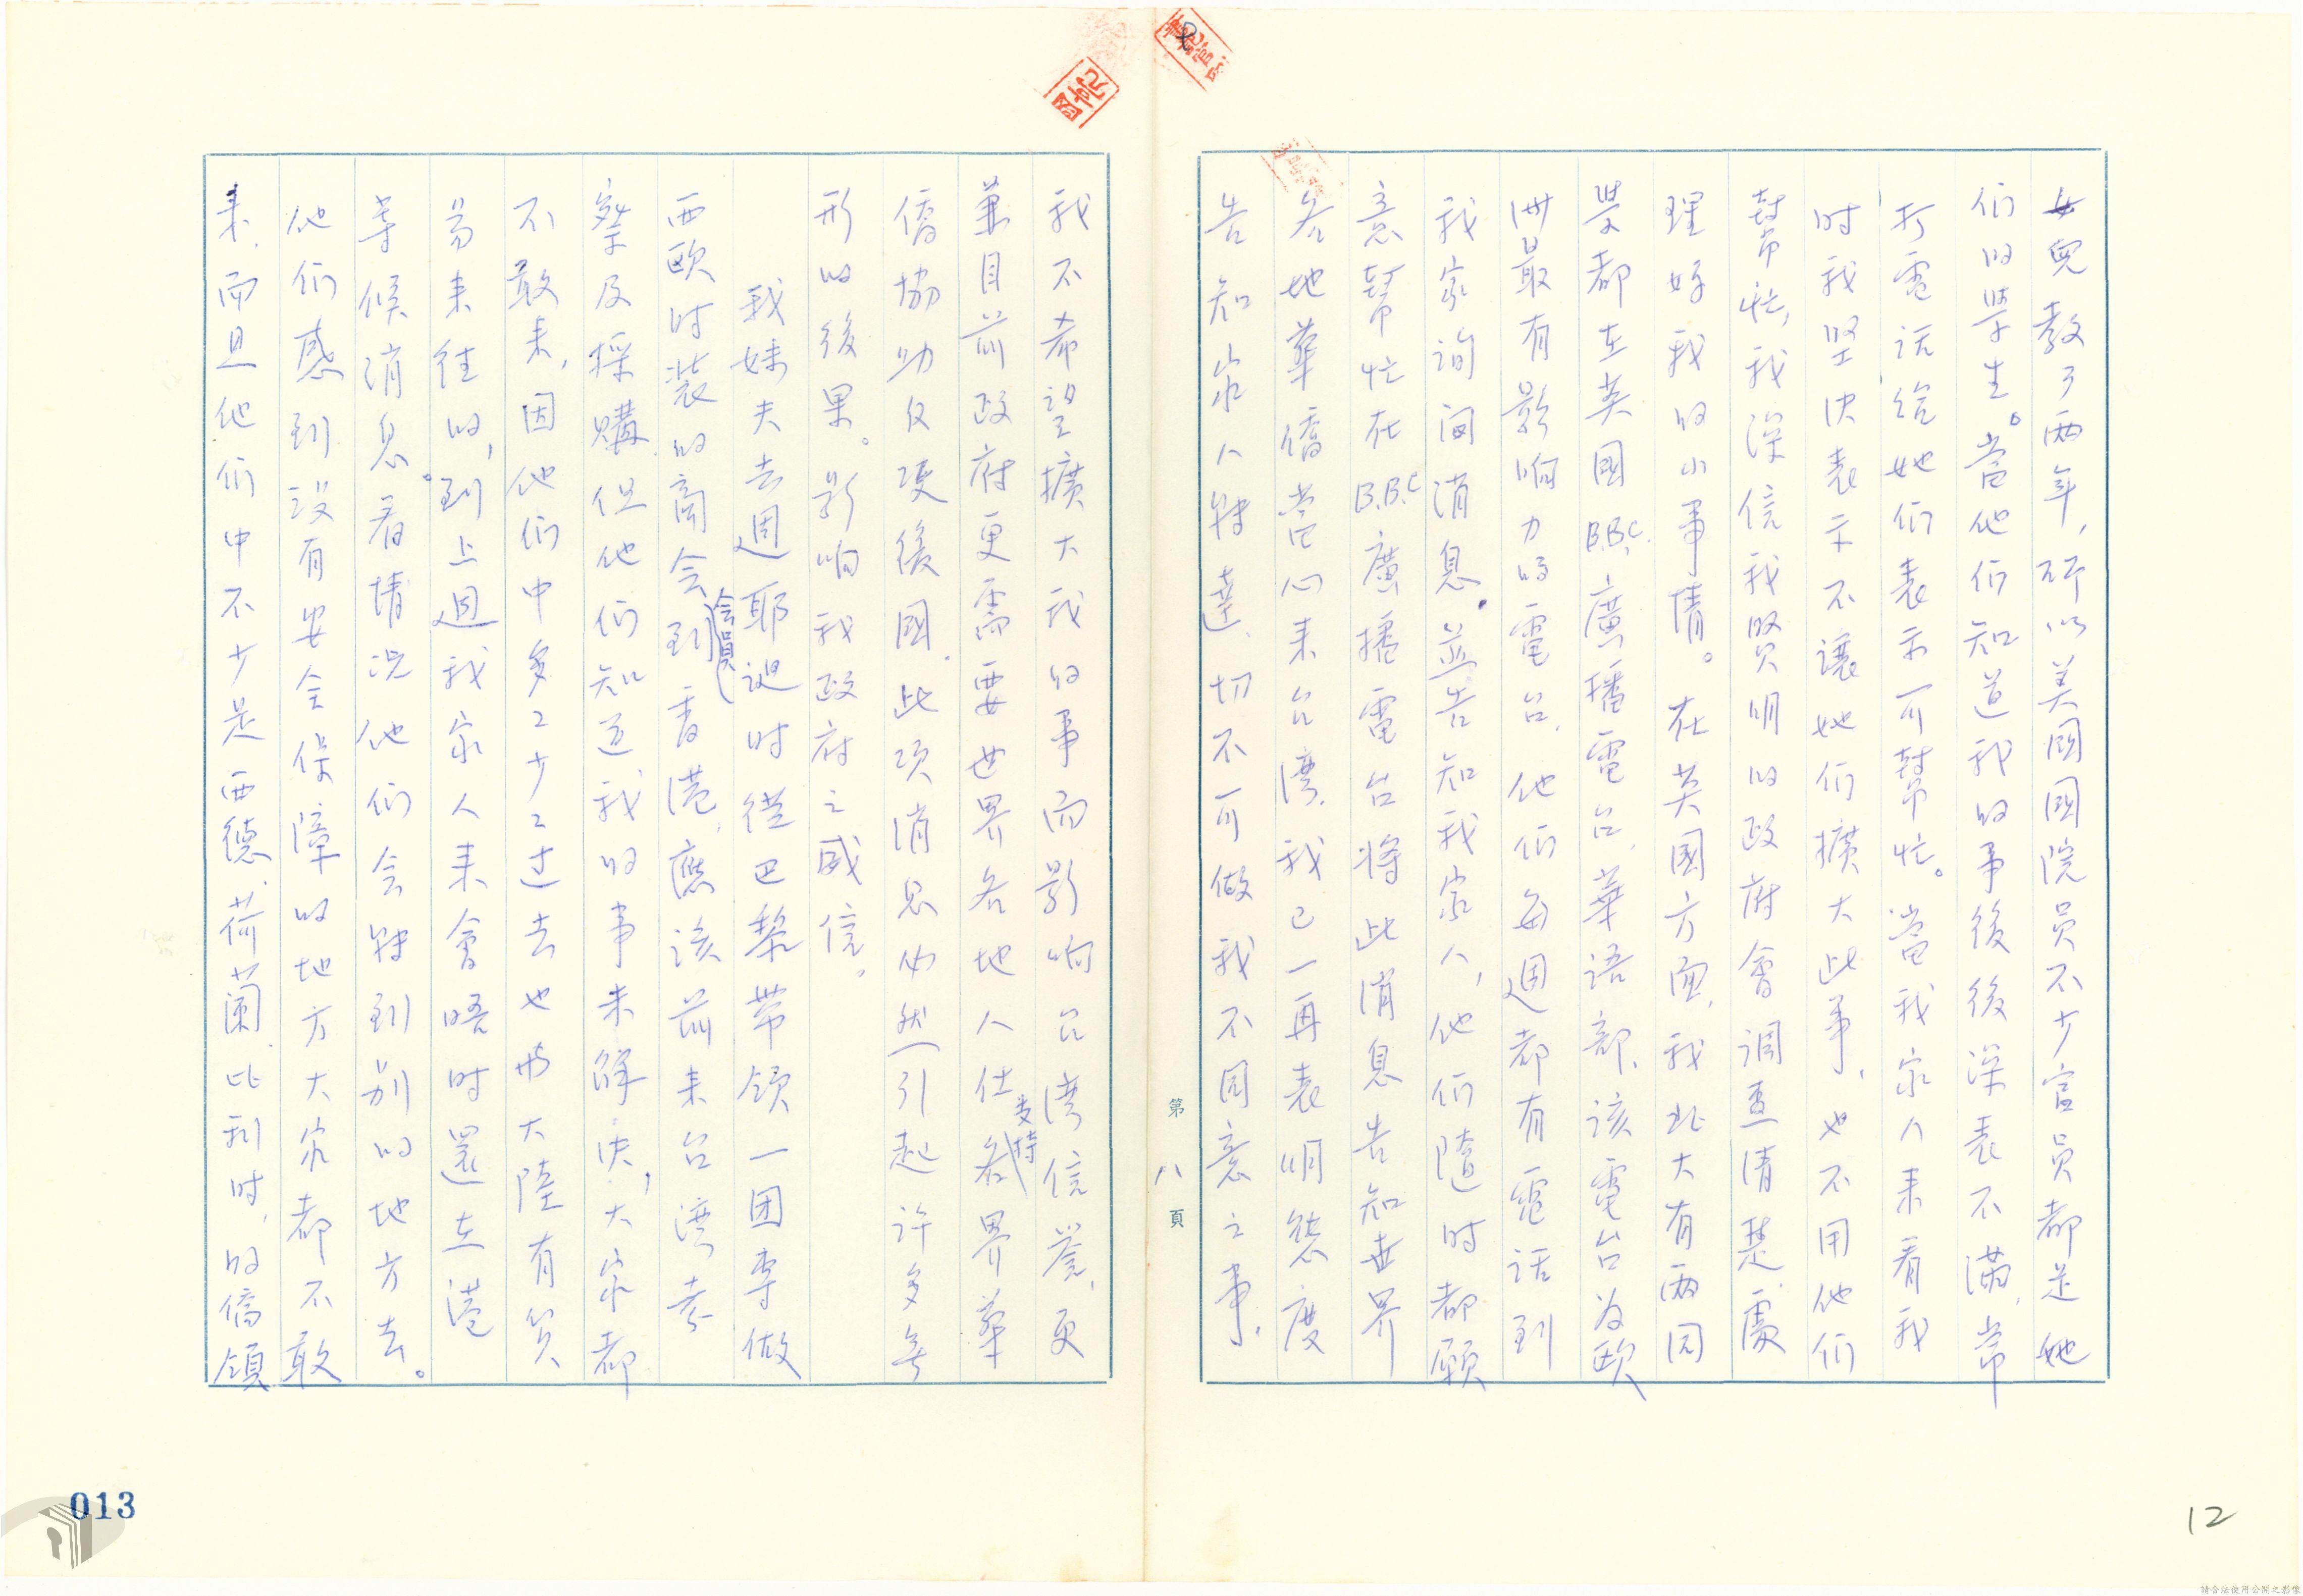 女兒教了兩年，所以美國國院員不少官員都是她
們的學生。當他們知道我的事後後深表不滿，常
打電話給她們表示可幫忙。當我家人來看我
时我坚决表示不讓她們擴大此事，也不用他們
幫忙，我深信我賢明的政府會調查清楚，處
理好我的小事情。在英國方面，我北大有兩同
學都在英國B.B.C.廣播電台，華語部，該電台为歐
洲最有影响力的電台，他們每週都有電话到
我家詢问消息。並告知我家人，他們隨时都願
意幫忙在B.B.C廣播電台將此消息告知世界
各地華僑當心来台湾，我己一再表明態度
告知家人轉達，切不可做我不同意之事，
第八頁
我不希望擴大我的事而影响台湾信誉，更
兼目前政府更需要世界各地人仕支持各界華
僑協助反攻後國，此项消息必然引起许多無
形的後果。影响我政府之威信。
我妹夫去週耶誕时從巴黎带領一团專做
西欧时裝的商会(会員)到香港，應该前来台湾考
察及採購，但他們知道我的事未解决，大家都
不敢来，因他們中多多少少过去也与大陸有貿
易来往的，到上週我家人来會晤时還在港
等候消息。看情况他們会转到别的地方去。
他們感到没有安全保障的地方大家都不敢
来，而且他們中不少是西德，荷蘭，比利时，的僑領
013
12
請合法使用公開之影像